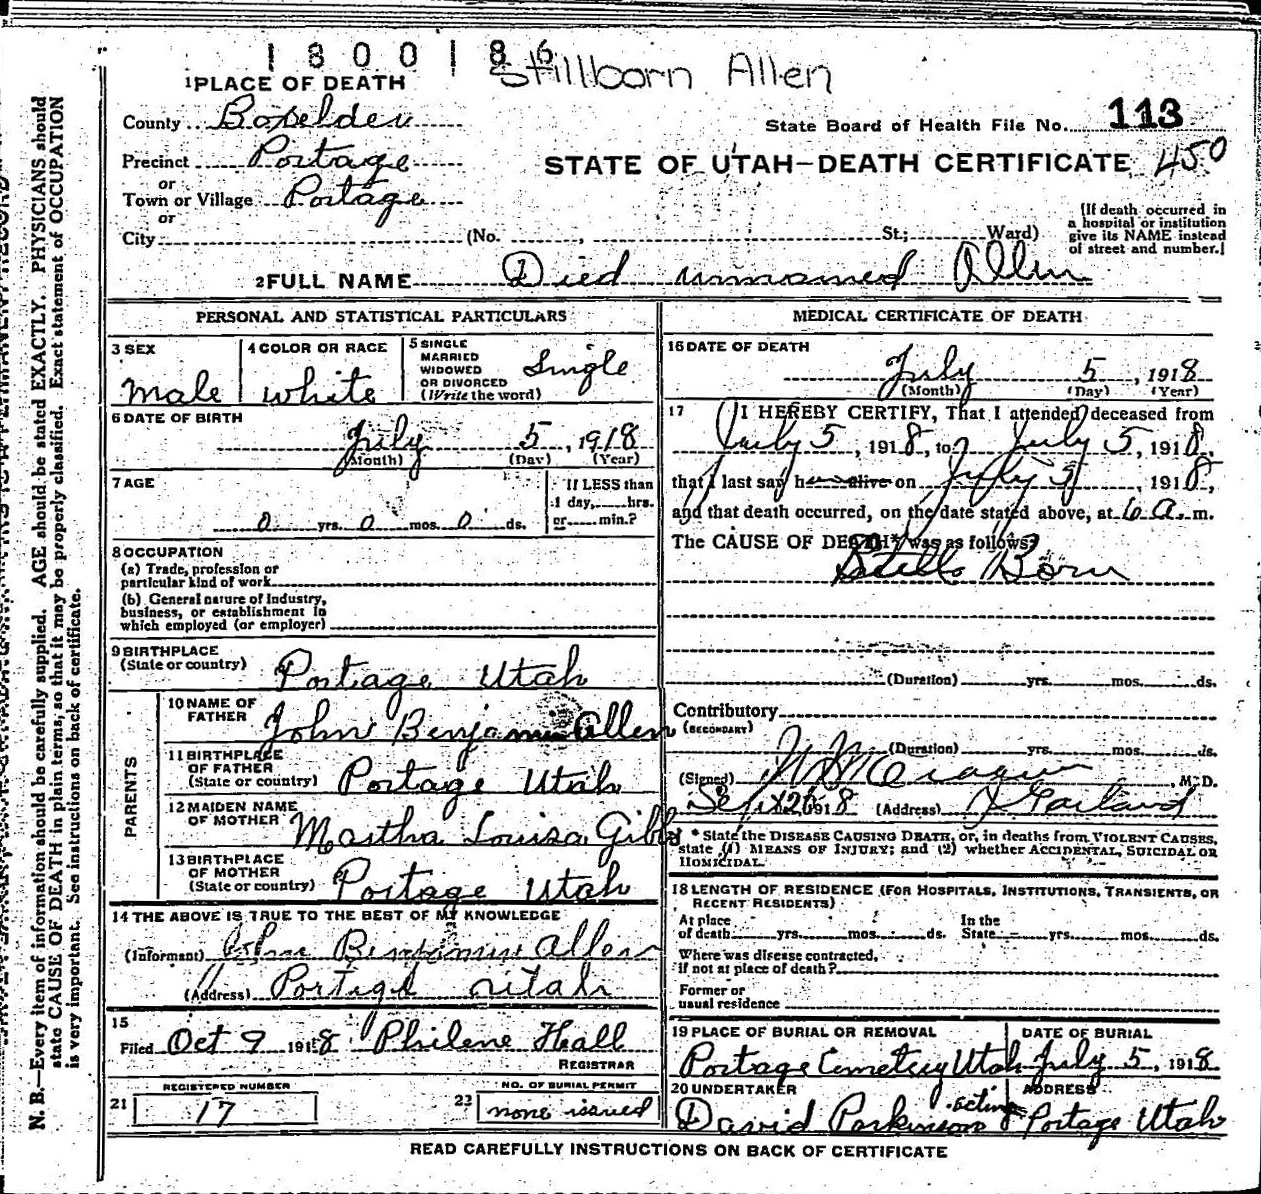 1800186
Stillborn Allen
1 PLACE OF DEATH
County Boxelder
State Board of Health File No. 113
Precinct Portage
STATE OF UTAH—DEATH CERTIFICATE 450
or
Town or Village Portage
or
City (No. , St.; Ward)
(If death occurred in a hospital or institution give its NAME instead of street and number.)
2 FULL NAME Died unnamed Allen
PERSONAL AND STATISTICAL PARTICULARS
3 SEX
Male
4 COLOR OR RACE
White
5 SINGLE MARRIED WIDOWED OR DIVORCED (Write the word)
Single
6 DATE OF BIRTH
July 5, 1918
(Month) (Day) (Year)
7 AGE
0 yrs. 0 mos. 0 ds.
If LESS than 1 day, hrs. or min.?
8 OCCUPATION
(a) Trade, profession or
particular kind of work
(b) General nature of Industry,
business, or establishment in
which employed (or employer)
9 BIRTHPLACE
(State or country) Portage Utah
PARENTS
10 NAME OF FATHER John Benjamin Allen
11 BIRTHPLACE OF FATHER (State or country) Portage Utah
12 MAIDEN NAME OF MOTHER Martha Louisa Gibbs
13 BIRTHPLACE OF MOTHER (State or country) Portage Utah
14 THE ABOVE IS TRUE TO THE BEST OF MY KNOWLEDGE
(Informant) John Benjamin Allen
(Address) Portage Utah
15
Filed Oct 9 1918 Philene Hall
REGISTRAR
REGISTERED NUMBER
21 17
NO. OF BURIAL PERMIT
22 none issued
MEDICAL CERTIFICATE OF DEATH
16 DATE OF DEATH
July 5, 1918
(Month) (Day) (Year)
17 I HEREBY CERTIFY, That I attended deceased from
July 5, 1918, to July 5, 1918,
that I last saw h alive on July 5, 1918,
and that death occurred, on the date stated above, at 6 a. m.
The CAUSE OF DEATH* was as follows:
Still Born
(Duration) yrs. mos. ds.
Contributory
(SECONDARY)
(Duration) yrs. mos. ds.
(Signed) , M.D.
Sept 26 1918 (Address) Garland
* State the DISEASE CAUSING DEATH, or, in deaths from VIOLENT CAUSES,
state (1) MEANS OF INJURY; and (2) whether ACCIDENTAL, SUICIDAL OR
HOMICIDAL.
18 LENGTH OF RESIDENCE (FOR HOSPITALS, INSTITUTIONS, TRANSIENTS, OR
RECENT RESIDENTS)
At place of death yrs. mos. ds. In the State yrs. mos. ds.
Where was disease contracted,
if not at place of death?
Former or
usual residence
19 PLACE OF BURIAL OR REMOVAL
Portage Cemetery Utah
DATE OF BURIAL
July 5, 1918
20 UNDERTAKER
David Parkinson acting
ADDRESS
Portage Utah
READ CAREFULLY INSTRUCTIONS ON BACK OF CERTIFICATE
N. B.—Every item of information should be carefully supplied. AGE should be stated EXACTLY. PHYSICIANS should
state CAUSE OF DEATH in plain terms, so that it may be properly classified. Exact statement of OCCUPATION
is very important. See instructions on back of certificate.